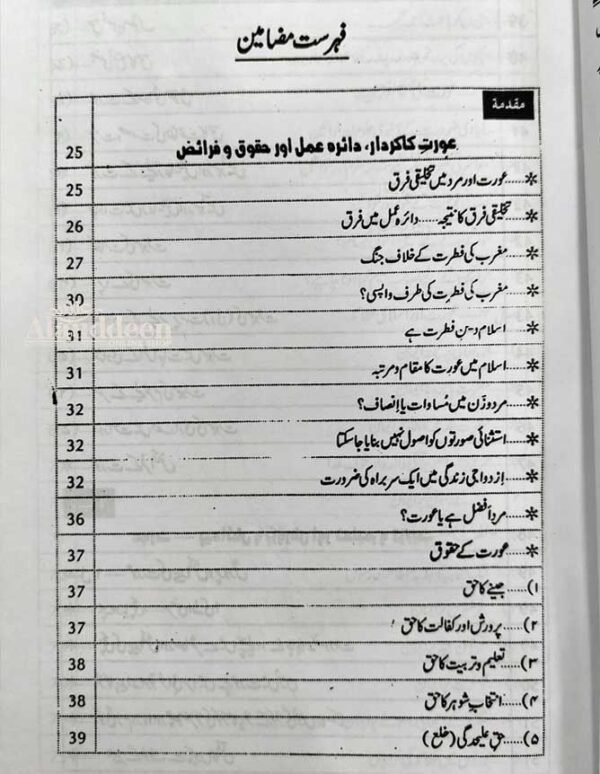 فہرست مضامین
مقدمة
عورت کا کردار، دائرہ عمل اور حقوق و فرائض 25
*.....عورت اور مرد میں تخلیقی فرق 25
*.....تخلیقی فرق کا نتیجہ.....دائرہ عمل میں فرق 26
*.....مغرب کی فطرت کے خلاف جنگ 27
*.....مغرب کی فطرت کی طرف واپسی؟ 30
*.....اسلام دین فطرت ہے 31
*.....اسلام میں عورت کا مقام و مرتبہ 31
*.....مرد و زَن میں مُساوات یا اِنصاف؟ 32
*.....استثنائی صورتوں کو اصول نہیں بنایا جا سکتا 32
*.....اِزدواجی زندگی میں ایک سربراہ کی ضرورت 32
*.....مرد افضل ہے یا عورت؟ 36
*.....عورت کے حقوق 37
۱).....جینے کا حق 37
۲).....پرورش اور کفالت کا حق 37
۳).....تعلیم و تربیت کا حق 38
۴).....انتخابِ شوہر کا حق 38
۵).....حقِ علیحدگی (خلع) 39
Alauddeen